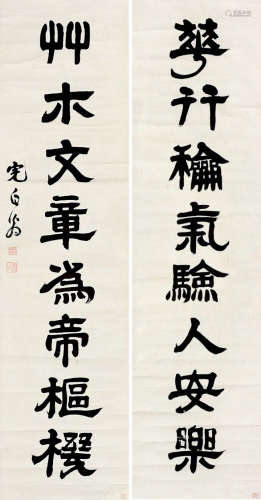 華竹龢氣驗人安樂
艸木文章為帝樞機
完白翁